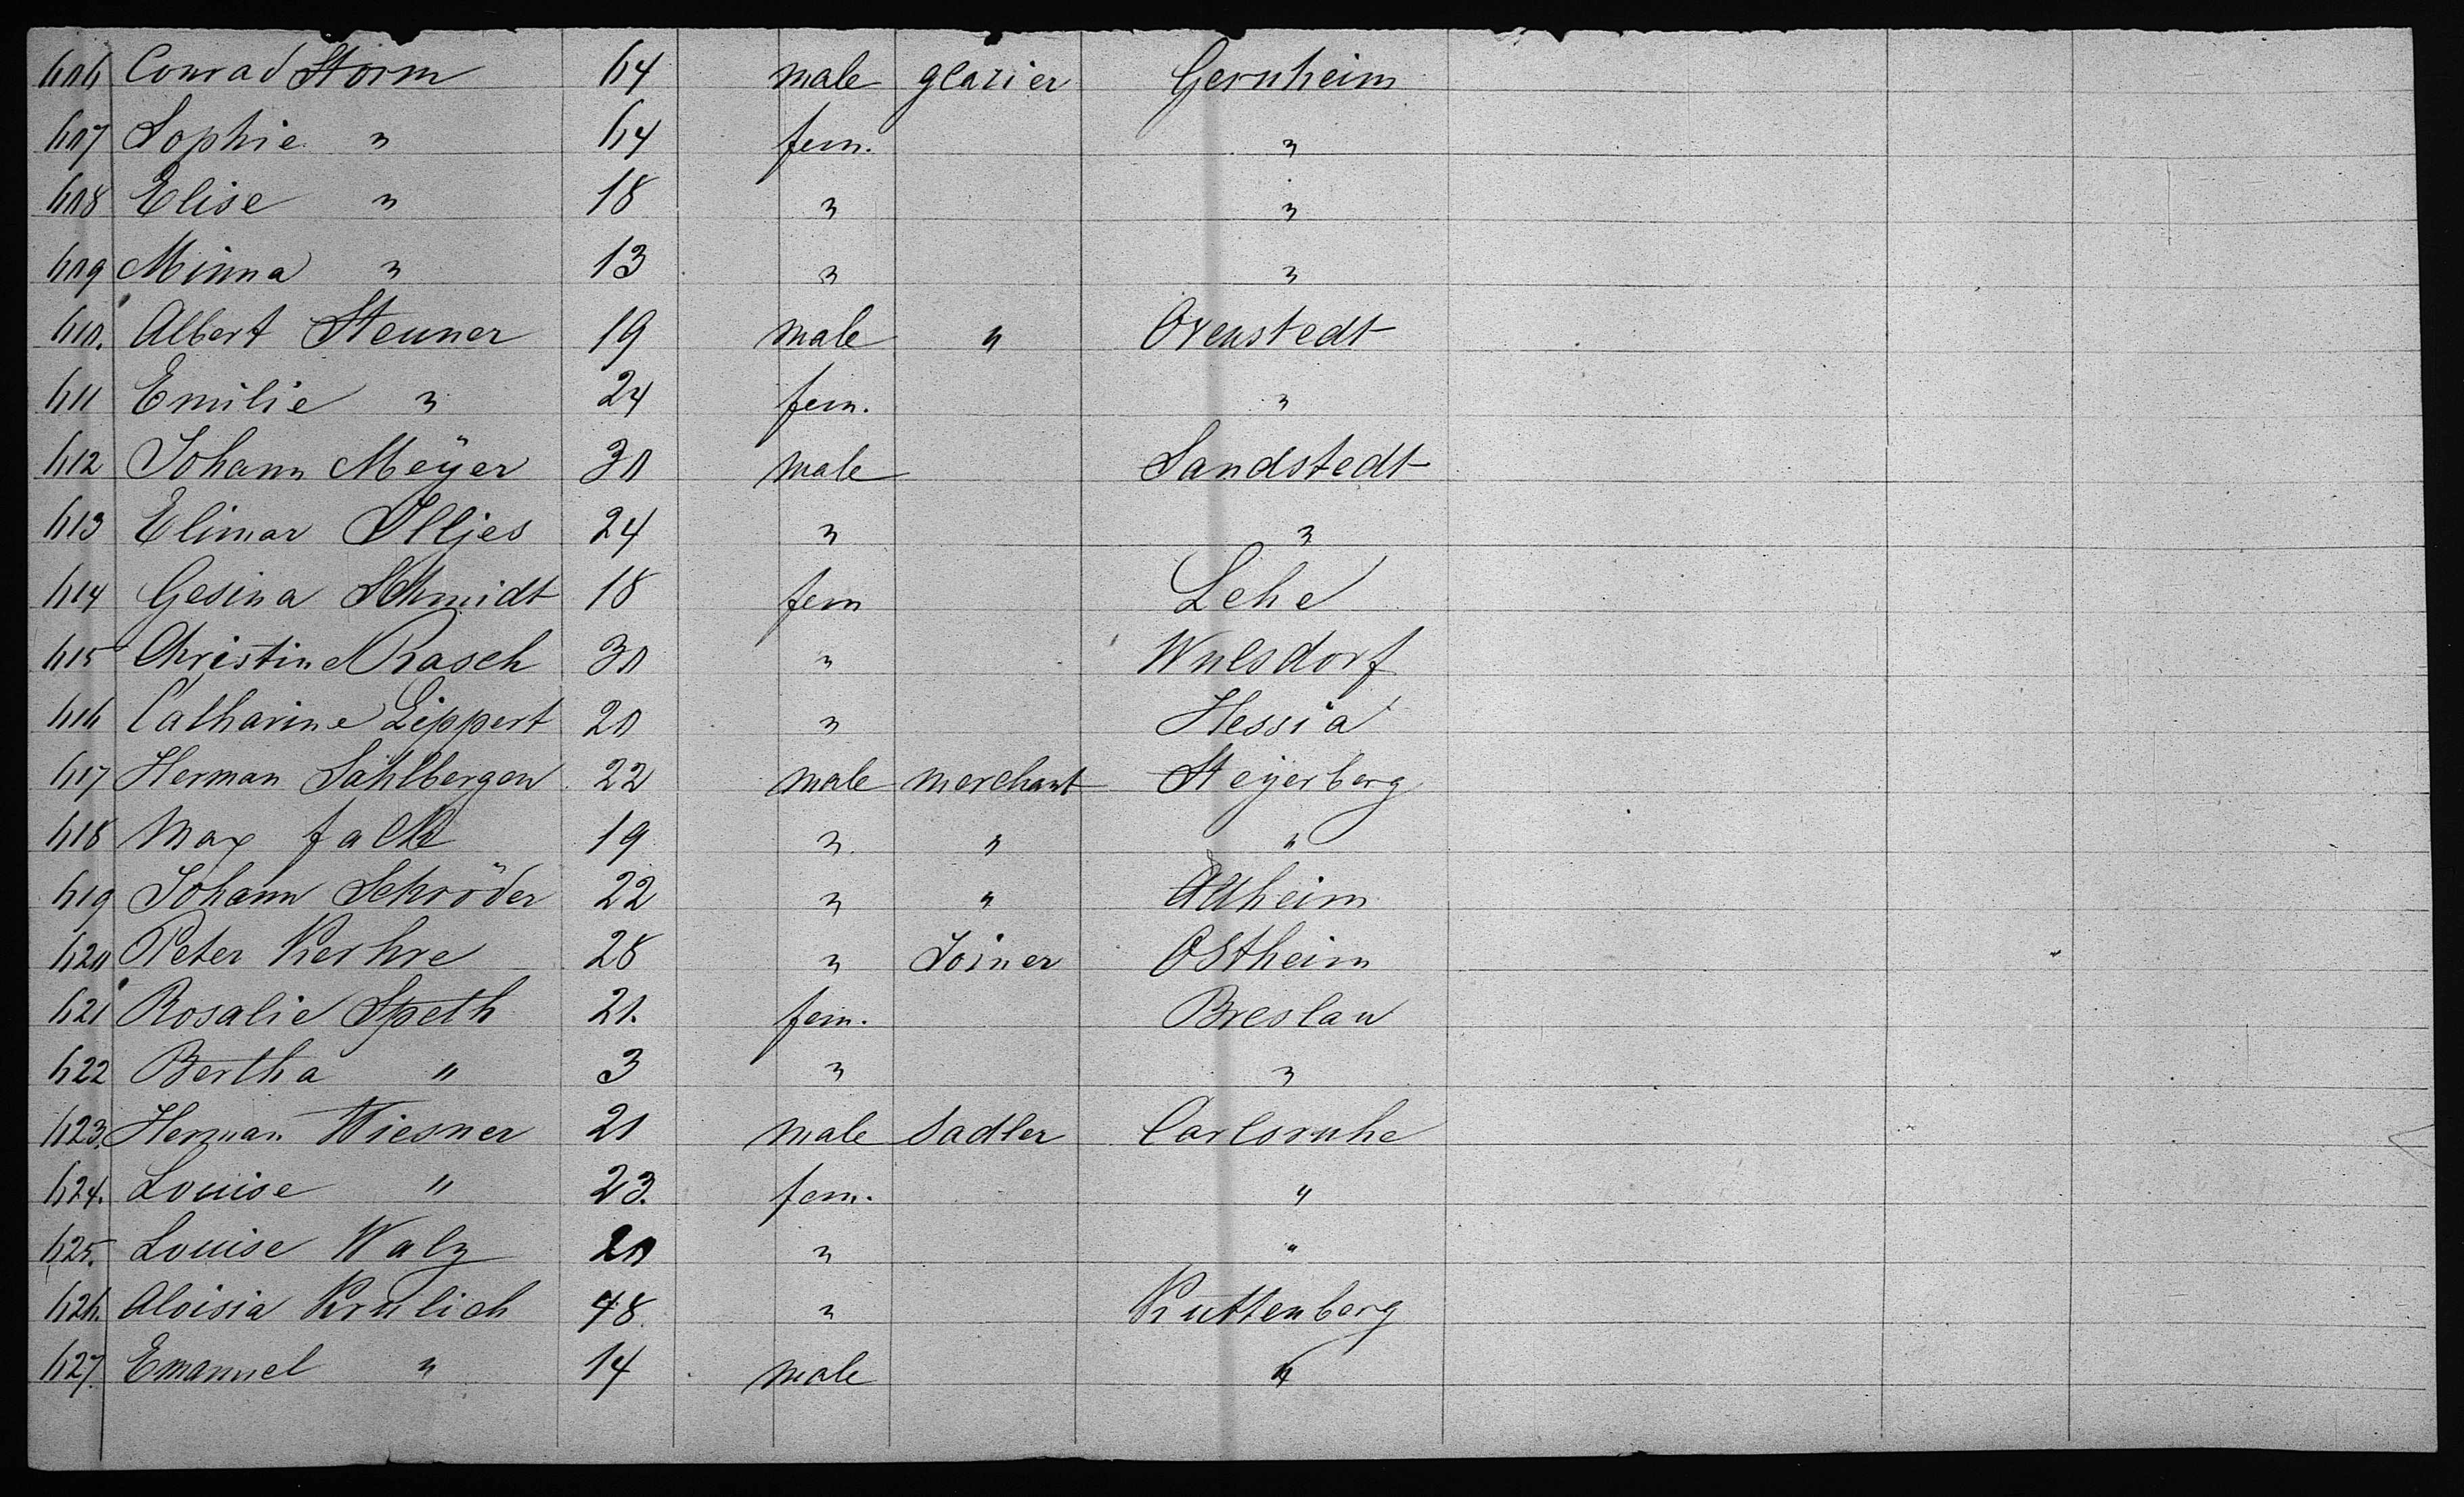 606 Conrad Storm 64 male glazier Gernheim
607 Sophie " 64 fem. "
608 Elise " 18 " "
609 Minna " 13 " "
610. Albert Steuner 19 male " Ovenstedt
611 Emilie " 24 fem. "
612 Johann Meÿer 30 male Sandstedt
613 Elimar Illjes 24 " "
614 Gesina Schmidt 18 fem Lehe
615 Christine Rasch 30 " Wulsdorf
616 Catharine Lippert 20 " Hessia
617 Herman Sahlbergen 22 male merchant Steÿerberg
618 Max falk 19 " " "
619 Johann Schröder 22 " " Altheim
620 Peter Kerhre 28 " Joiner Ostheim
621 Rosalie Speth 21. fem. Breslau
622 Bertha " 3 " "
623. Herman Wiesner 21 male Sadler Carlsruhe
624. Louise " 23. fem. "
625. Louise Walz 20 " "
626. Aloisia Krulich 48. " Kuttenberg
627. Emanuel " 14 male "